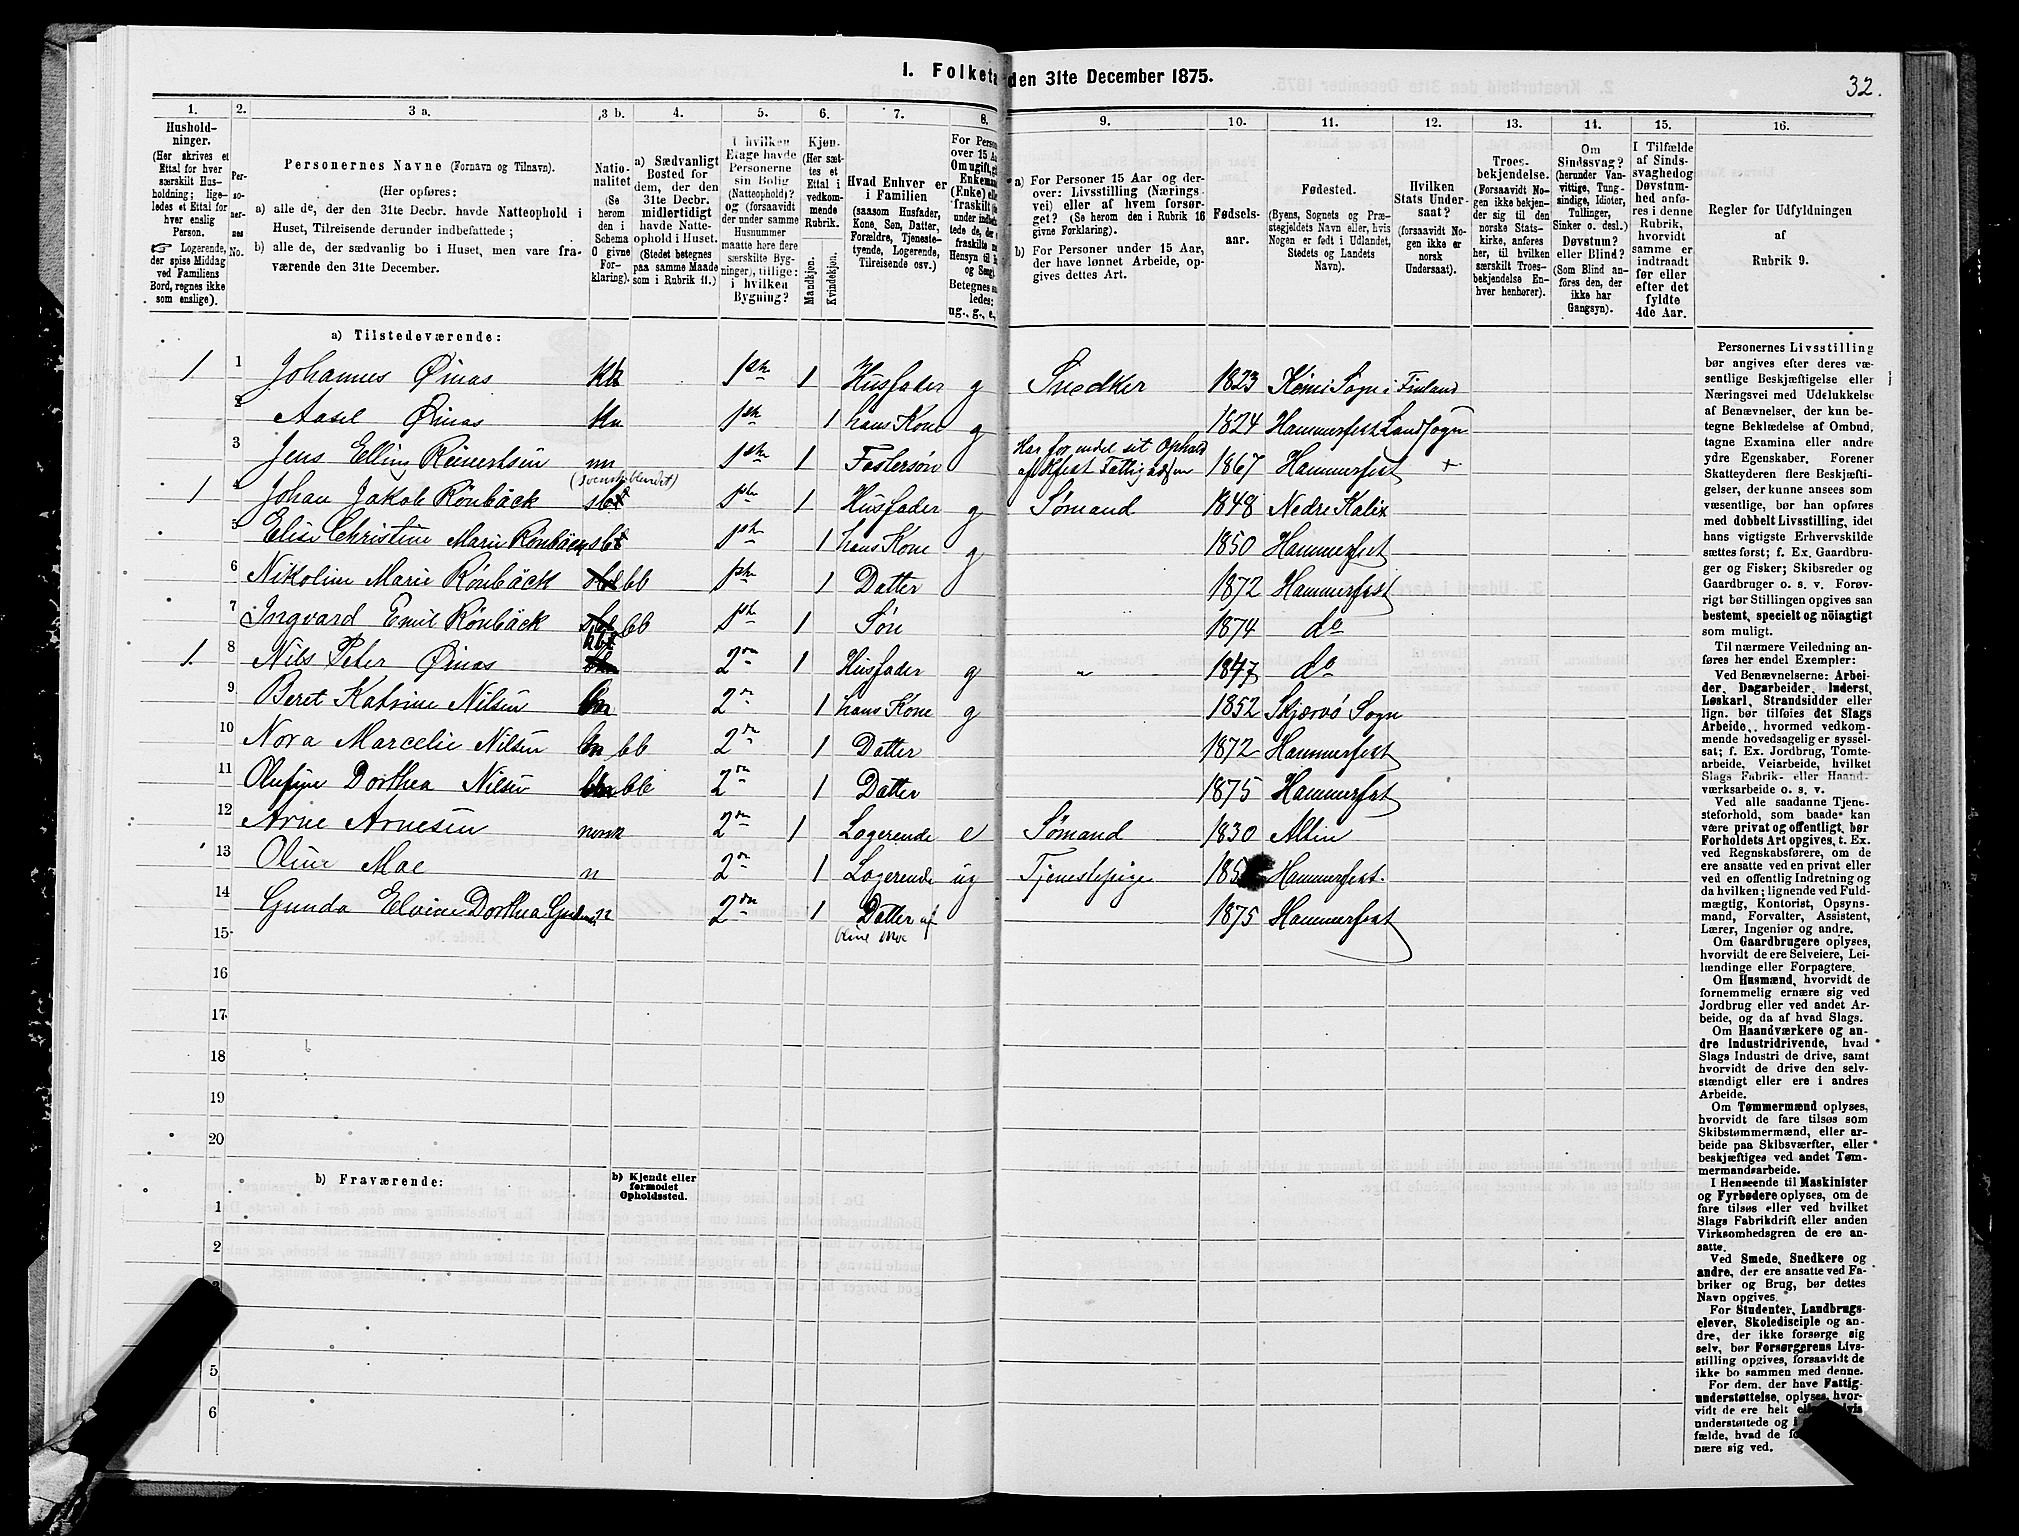 I. Folketæ den 31te December 1875.
32.
1.
Hushold-
ninger.
(Her skrives et
Ettal for hver
særskilt Hus-
holdning; lige-
ledes et Ettal for
hver enslig
Person.
☞ Logerende,
der spise Middag
ved Familiens
Bord, regnes ikke
som enslige).
2.
Per-
so-
ner-
nes
No.
3 a.
Personernes Navne (Fornavn og Tilnavn).
(Her opføres:
a) alle de, der den 31te Decbr. havde Natteophold i
Huset, Tilreisende derunder indbefattede;
b) alle de, der sædvanlig bo i Huset, men vare fra-
værende den 31te December.
3 b.
Natio-
nalitet
(Se
herom
den i
Schema
O givne
For-
klaring).
4.
a) Sædvanligt
Bosted for
dem, der den
31te Decbr.
midlertidigt
havde Natte-
ophold i Huset.
(Stedet betegnes
paa samme Maade
som i Rubrik 11.)
5.
I hvilken
Etage havde
Personerne
sin Bolig
(Natteophold)?
og (forsaavidt
der under samme
Husnummer
maatte høre flere
særskilte Byg-
ninger), tillige:
i hvilken
Bygning?
6.
Kjøn.
(Her sæt-
tes et
Ettal i
vedkom-
mende
Rubrik.
Mandkjøn.
Kvindekjøn.
7.
Hvad Enhver er
i Familien
(saasom Husfader,
Kone, Søn, Datter,
Forældre, Tjeneste-
tyende, Logerende,
Tilreisende osv.)
8.
For Person
over 15 Aa
Om ugift, g
Enkeman
(Enke) elle
fraskilt (he
under indbe
tede de, der
fraskilte m
Hensyn til B
og Seng).
Betegnes sa
ledes:
ug., g., e.,
9.
a) For Personer 15 Aar og der-
over: Livsstilling (Nærings-
vei) eller af hvem forsør-
get? (Se herom den i Rubrik 16
givne Førklaring).
b) For Personer under 15 Aar,
der have lønnet Arbeide, op-
gives dettes Art.
10.
Fødsels-
aar.
11.
Fødested.
(Byens, Sognets og Præ-
stegjeldets Navn eller, hvis
Nogen er født i Udlandet,
Stedets og Landets
Navn).
12.
Hvilken
Stats Under-
saat?
(forsaavidt No-
gen ikke er
norsk
Undersaat).
13.
Troes-
bekjendelse.
(Forsaavidt No-
gen ikke bekjen-
der sig til den
norske Stats-
kirke, anføres
her, til hvilken
særskilt Troes-
bekjendelse En-
hver henhører).
14.
Om
Sindssvag?
(herunder Van-
vittige, Tung-
sindige, Idioter,
Tullinger,
Sinker o. desl.)
Døvstum?
eller Blind?
(Som Blind an-
føres den, der
ikke har
Gangsyn).
15.
I Tilfælde
af Sinds-
svaghed og
Døvstum-
hed anfø-
res i denne
Rubrik,
hvorvidt
samme er
indtraadt
før eller
efter det
fyldte
4de Aar.
16.
Regler for Udfyldningen
af
Rubrik 9.
a) Tilstedeværende:
1 1 Johannes Øinas kn 1ste 1 Husfader g Snedker 1823 Kemi Sogn i Finland
2 Aasel Øinas kn 1ste 1 hans Kone g 1824 Hammerfest Landsogn
3 Jens Elling Reinertsen nn 1ste 1 Fostersøn Har for endel sit Ophold
af Hfest Fattigvæsen 1867 Hammerfest +
(svensk blandet)
1 4 Johan Jakob Rönbäck sbl 1ste 1 Husfader g Sømand 1848 Nedre Kalix
5 Elise Christine Marie Rönbäck sbl 1ste 1 hans Kone g 1850 Hammerfest
6 Nikoline Marie Rönbäck bb 1ste 1 Datter 1872 Hammerfest
7 Ingvard Emil Rönbäck bb 1ste 1 Søn 1874 do
1. 8 Nils Peter Øinas 2den 1 Husfader g " 1847 do
9 Beret Katrine Nilsen 2den 1 hans Kone g 1852 Skjærvø Sogn
10 Nora Marcelie Nilsen bb 2den 1 Datter 1872 Hammerfest
11 Olufine Dorthea Nilsen bb 2den 1 Datter 1875 Hammerfest
12 Arne Arnesen norsk 2den 1 Logerende e Sømand 1830 Alten
13 Oline Moe n 2den 1 Logerende ug Tjenestepige 185 Hammerfest.
14 Gunda Elvine Dorthea n 2den 1 Datter af 1875 Hammerfest
Oline Moe
15
16
17
18
19
20
b) Fraværende:
b) Kjendt eller
formodet
Opholdssted.
1
2
3
5
6
Personernes Livsstilling
bør angives efter deres væ-
sentlige Beskjæftigelse eller
Næringsvei med Udelukkelse
af Benævnelser, der kun be-
tegne Beklædelse af Ombud,
tagne Examina eller andre
ydre Egenskaber. Forener
Skatteyderen flere Beskjæfti-
gelser, der kunne ansees som
væsentlige, bør han opføres
med dobbelt Livsstilling, idet
hans vigtigste Erhvervskilde
sættes først; f. Ex. Gaardbru-
ger og Fisker; Skibsreder og
Gaardbruger o. s. v. Forøv-
rigt bør Stillingen opgives saa
bestemt, specielt og nöiagtigt
som muligt.
Til nærmere Veiledning an-
føres her endel Exempler:
Ved Benævnelserne: Arbei-
der, Dagarbeider, Inderst,
Løskarl, Strandsidder eller
lign. bør tilføies det Slags
Arbeide, hvormed vedkom-
mende hovedsagelig er syssel-
sat; f. Ex. Jordbrug, Tomte-
arbeide, Veiarbeide, hvilket
Slags Fabrik- eller Haand-
værksarbeide o. s. v.
Ved alle saadanne Tjene-
steforhold, som baade kan
være privat og offentligt, bør
Forholdets Art opgives, t. Ex.
ved Regnskabsførere, om de
ere ansatte ved en privat eller
ved en offentlig Indretning og
da hvilken; lignende ved Fuld-
mægtig, Kontorist, Opsyns-
mand, Forvalter, Assistent,
Lærer, Ingeniør og andre.
Om Gaardbrugere oplyses,
hvorvidt de ere Selveiere, Lei-
lændinge eller Forpagtere.
Om Husmænd, hvorvidt de
fornemmelig ernære sig ved
Jordbrug eller ved andet Ar-
beide, og da af hvad Slags.
Om Haandværkere og an-
dre Industridrivende, hvad
Slags Industri de drive, samt
hvorvidt de drive den selv-
stændigt eller ere i andres
Arbeide.
Om Tømmermænd oplyses,
hvorvidt de fare tilsøs som
Skibstømmermænd, eller ar-
beide paa Skibsværfter, eller
beskjæftiges ved andet Tøm-
mermandsarbeide.
I Henseende til Maskinister
og Fyrbødere oplyses, om de
fare tilsøs eller ved hvilket
Slags Fabrikdrift eller anden
Virksomhedsgren de ere an-
satte.
Ved Smede, Snedkere og
andre, der ere ansatte ved Fa-
briker og Brug, bør dettes
Navn opgives.
For Studenter, Landbrugs-
elever, Skoledisciple og an-
dre, der ikke forsørge sig
selv, bør Forsørgerens Livs-
stilling opgives, forsaavidt de
ikke bo sammen med denne.
For dem, der have Fattig-
understøttelse, oplyses, hvor-
vidt de ere helt
understøttede og i
fælde, hvad de
nære sig ved.